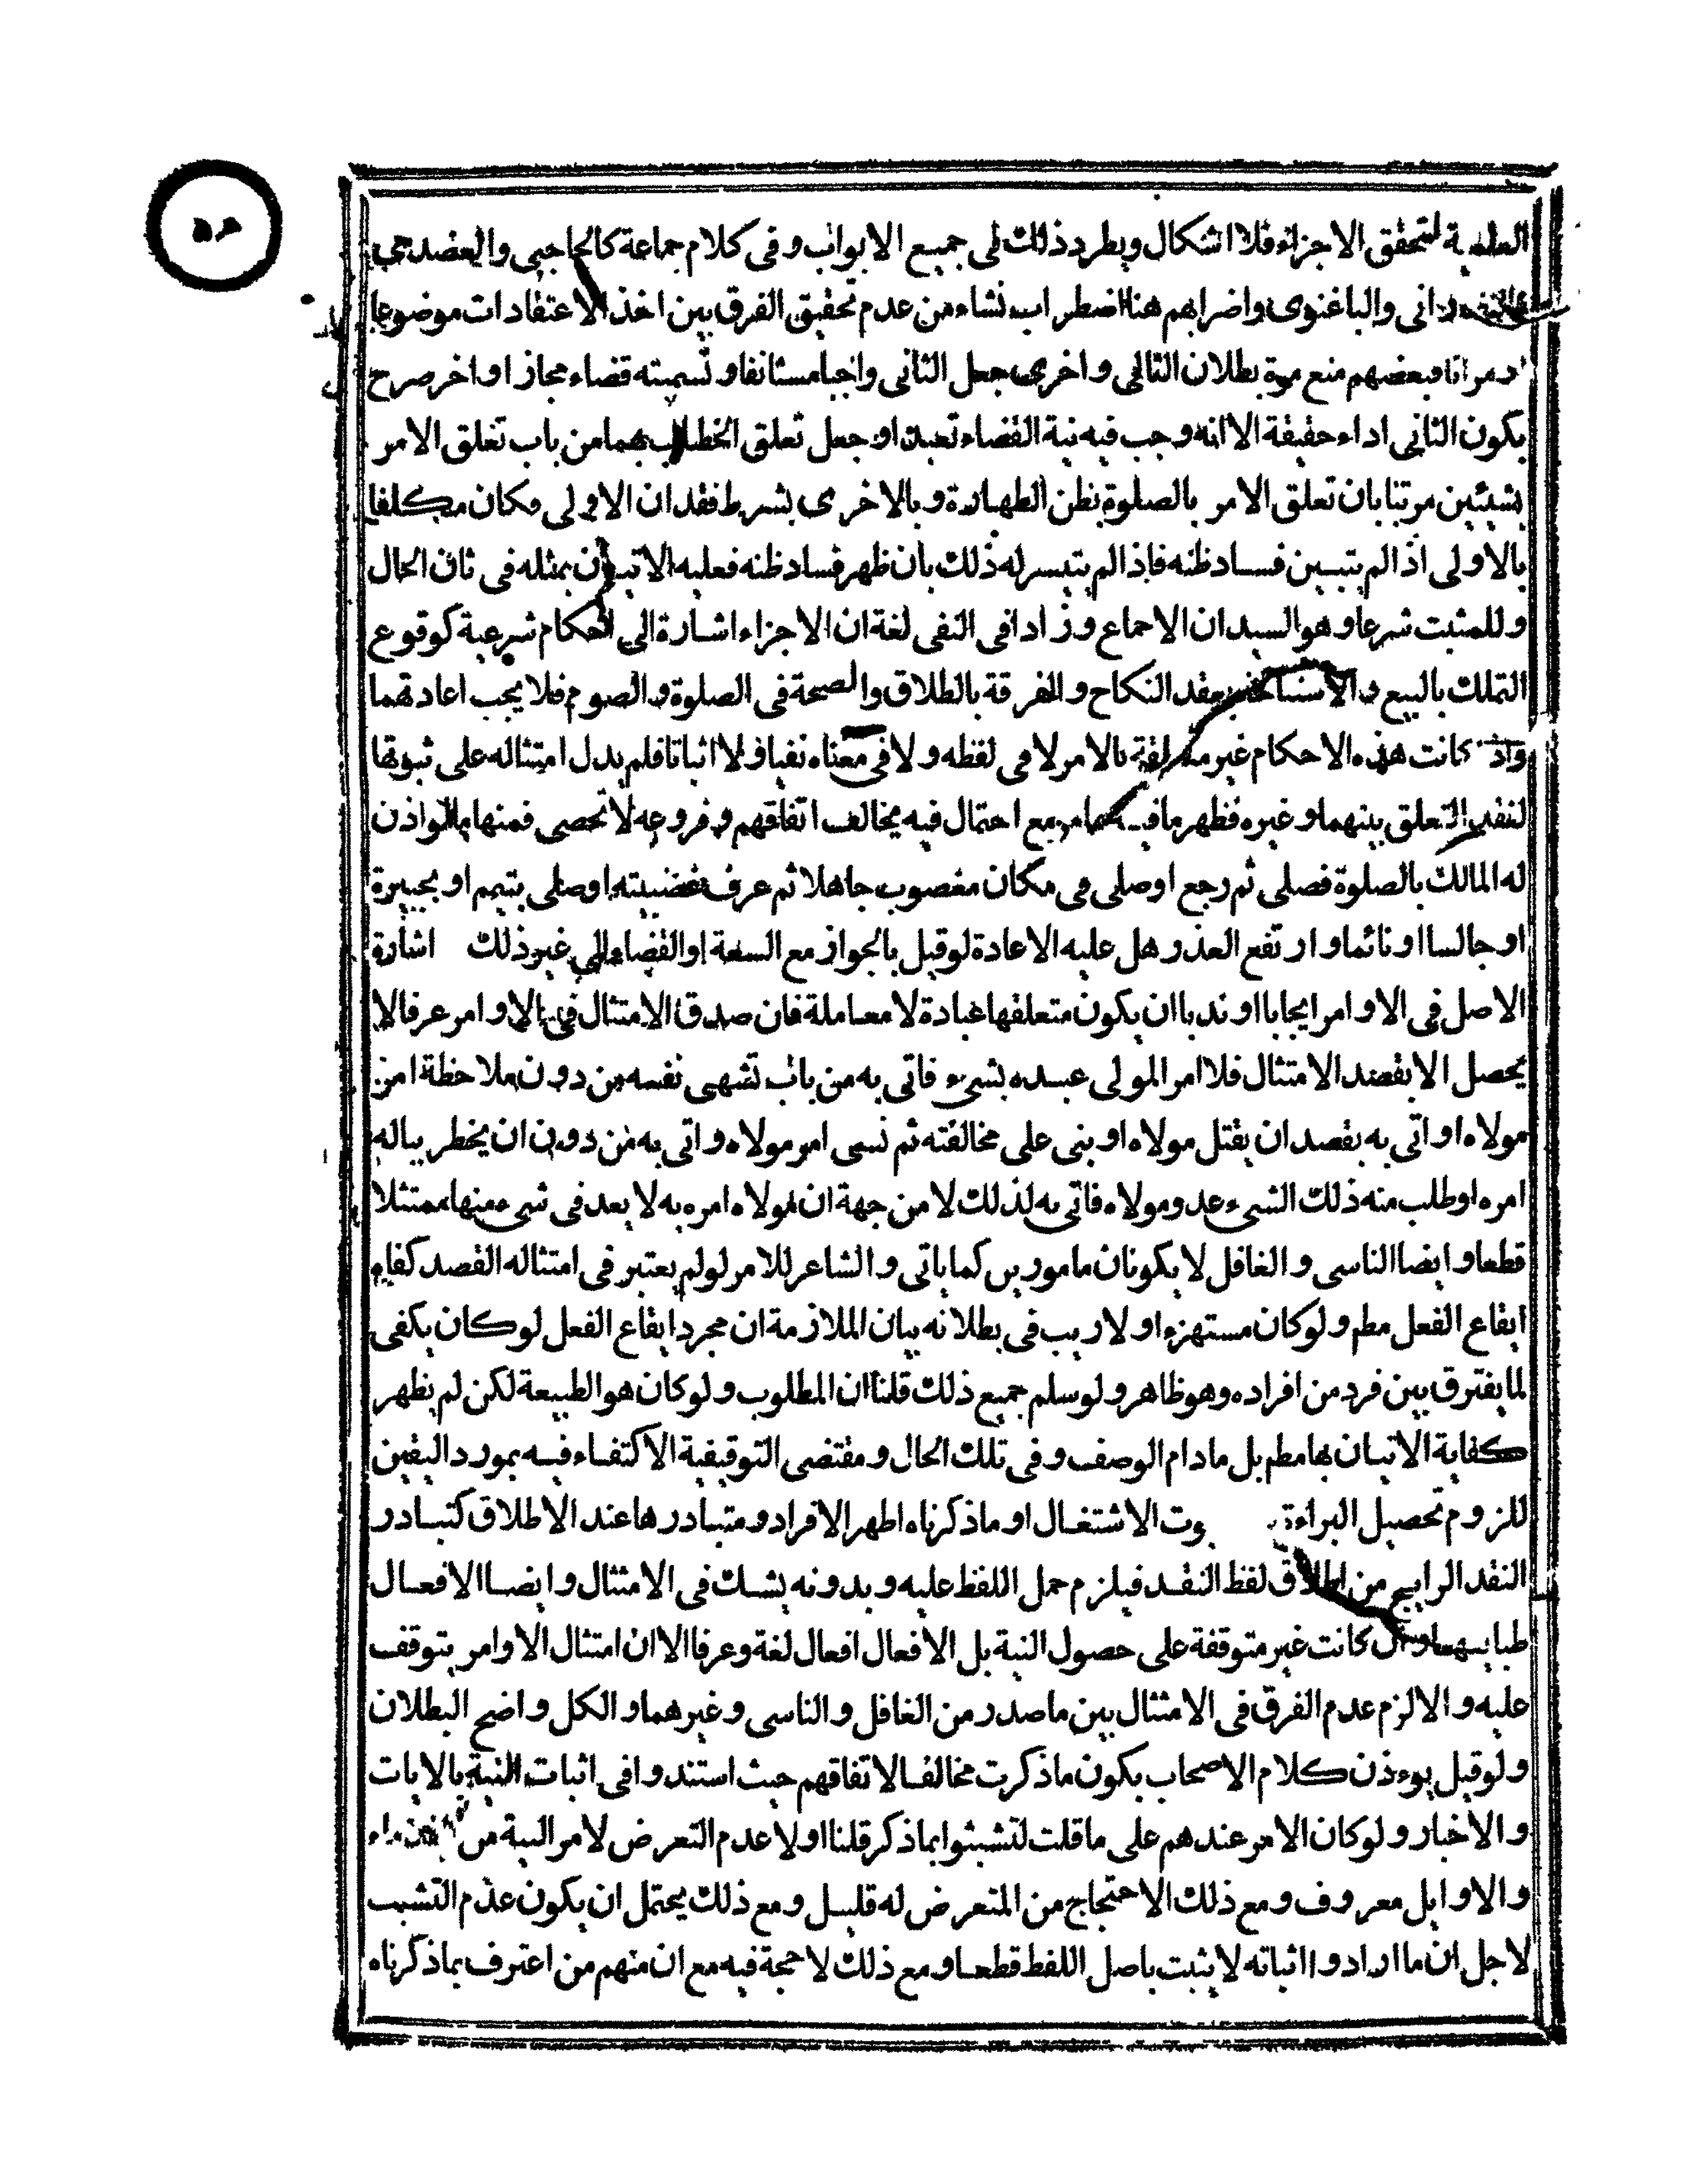 العلمية لتحقق الاجزاء فلا اشكال ويطرد ذلك في جميع الابواب وفي كلام جماعة كالحاجبي والعضدي
والباغنوي واضرابهم هنا اضطراب نشاء من عدم تحقيق الفرق بين اخذ الاعتقادات موضوعا
فبعضهم منع مرة بطلان التالي واخرى جعل الثاني واجبا مستانفا وتسميته قضاء مجازا واخر صرح
بكون الثاني اداء حقيقة الا انه وجب فيه نية القضاء تعبدا وجعل تعلق الخطاب بهما من باب تعلق الامر
بشيئين مرتبا بان تعلق الامر بالصلوة بظن الطهارة وبالاخرى بشرط فقدان الاولى وكان مكلفا
بالاولى اذا لم يتبين فساد ظنه فاذا لم يتيسر له ذلك بان ظهر فساد ظنه فعليه الاتيان بمثله في ثان الحال
وللمثبت شرعا وهو السيدان الاجماع وزادا في النفي لغة ان الاجزاء اشارة الى احكام شرعية كوقوع
التملك بالبيع و بعقد النكاح والفرقة بالطلاق والصحة في الصلوة والصوم فلا يجب اعادتهما
واذ كانت هذه الاحكام غير متعلقة بالامر لا في لفظه ولا في معناه نفيا ولا اثباتا فلم يدل امتثاله على ثبوتها
لفقد التعلق بينهما وغيره فظهر ما فيه مما مر مع احتمال فيه يخالف اتفاقهم وفروعه لا تحصى فمنها ما لو اذن
له المالك بالصلوة فصلى ثم رجع او صلى في مكان مغصوب جاهلا ثم عرف غصبيته او صلى بتيمم او بجبيرة
او جالسا او نائما وارتفع العذر هل عليه الاعادة لو قيل بالجواز مع السعة او القضاء الى غير ذلك اشارة
الاصل في الاوامر ايجابا او ندبا ان يكون متعلقها عبادة لا معاملة فان صدق الامتثال في الاوامر عرفا لا
يحصل الا بقصد الامتثال فلا امر المولى عبده بشيء فاتى به من باب تشهى نفسه من دون ملاحظة امر
مولاه او اتى به بقصد ان يقتل مولاه او بنى على مخالفته ثم نسى امر مولاه واتى به من دون ان يخطر بباله
امره او طلب منه ذلك الشيء عدو مولاه فاتى به لذلك لا من جهة ان مولاه امره به لا يعد في شيء منها ممتثلا
قطعا وايضا الناسي والغافل لا يكونان مامورين كما ياتى والشاعر للامر لو لم يعتبر في امتثاله القصد كفاه
ايقاع الفعل مطم ولو كان مستهزءا ولا ريب في بطلانه بيان الملازمة ان مجرد ايقاع الفعل لو كان يكفى
لما يفترق بين فرد من افراده وهو ظاهر ولو سلم جميع ذلك قلنا ان المطلوب ولو كان هو الطبيعة لكن لم يظهر
كفاية الاتيان بها مطم بل ما دام الوصف وفي تلك الحال ومقتضى التوقيفية الاكتفاء فيه بمورد اليقين
للزوم تحصيل البراءة وت الاشتغال او ما ذكرناه اظهر الافراد ومتبادرها عند الاطلاق كتبادر
النقد الرايج من اطلاق لفظ النقد فيلزم حمل اللفظ عليه وبدونه يشك في الامتثال وايضا الافعال
طبايعها وان كانت غير متوقفة على حصول النية بل الافعال افعال لغة وعرفا الا ان امتثال الاوامر يتوقف
عليه والا لزم عدم الفرق في الامتثال بين ما صدر من الغافل والناسي وغيرهما والكل واضح البطلان
ولو قيل يوءذن كلام الاصحاب بكون ما ذكرت مخالفا لاتفاقهم حيث استندوا في اثبات النية بالايات
والاخبار ولو كان الامر عندهم على ما قلت لتشبثوا بما ذكر قلنا اولا عدم التعرض لامر النية من
والاوايل معروف ومع ذلك الاحتجاج من المتعرض له قليل ومع ذلك يحتمل ان يكون عدم التشبث
لاجل ان ما ارادوا اثباته لا يثبت باصل اللفظ قطعا ومع ذلك لا حجة فيه مع ان منهم من اعترف بما ذكرناه